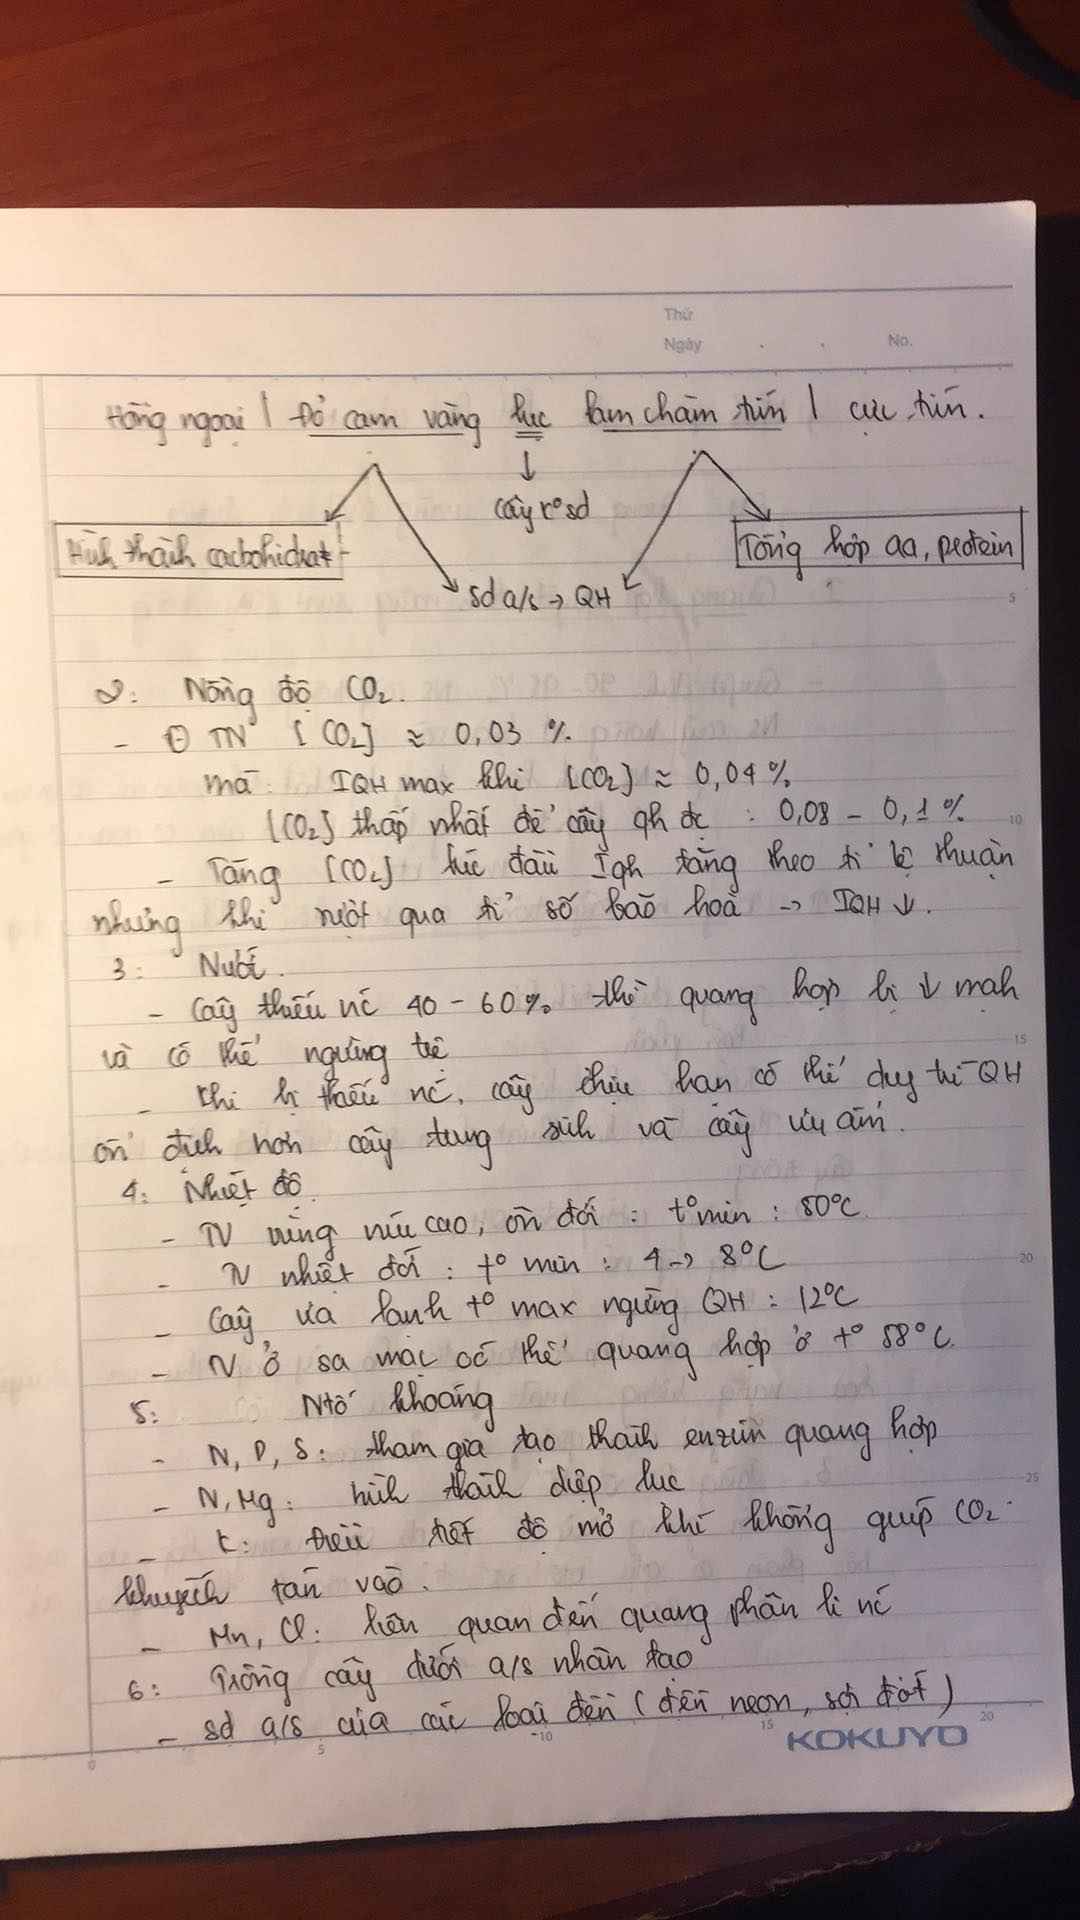 Thứ
Ngày . . No.
Hồng ngoại | Đỏ cam vàng lục lam chàm tím | cực tím.
cây k° sd
Hình thành cacbohidrat
Tổng hợp aa, protein
sd a/s → QH
2: Nồng độ CO₂.
- TN [CO₂] ≈ 0,03 %.
mà: IQH max khi [CO₂] ≈ 0,04 %
[CO₂] thấp nhất để cây qh đc : 0,08 - 0,1 %
- Tăng [CO₂] lúc đầu Iqh tăng theo tỉ lệ thuận
nhưng khi vượt qua trị số bão hoà → IQH ↓.
3: Nước.
- Cây thiếu nc 40 - 60 % thì quang hợp bị ↓ mạnh
và có thể ngừng trệ
- Khi bị thiếu nc, cây chịu hạn có thể duy trì QH
ổn định hơn cây trung sinh và cây ưu ẩm.
4: Nhiệt độ
- TV vùng núi cao, ôn đới : t° min : 50°C.
- TV nhiệt đới : t° min : 4 → 8°C
- Cây ưa lạnh t° max ngừng QH : 12°C
- TV ở sa mạc có thể quang hợp ở t° 58°C.
5: Ntố khoáng
- N, P, S: tham gia tạo thành enzim quang hợp
- N, Mg: hình thành diệp lục
- K: điều tiết độ mở khí khổng giúp CO₂
khuyếch tán vào.
- Mn, Cl: liên quan đến quang phân li nc
6: Trồng cây dưới a/s nhân tạo
- sd a/s của các loại đèn (đèn neon, sợi đốt)
KOKUYO